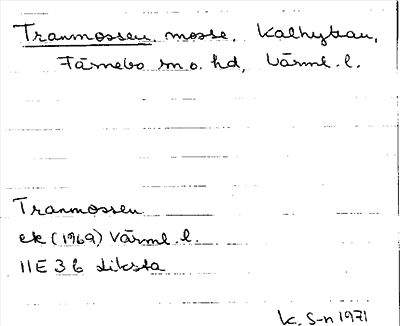 Tranmossen, mosse, Kalhyttan,
Färnebo sn o. hd, Värml. l.
Tranmossen
ek (1969) Värml. l.
11E 3b Liksta
K. S-n 1971